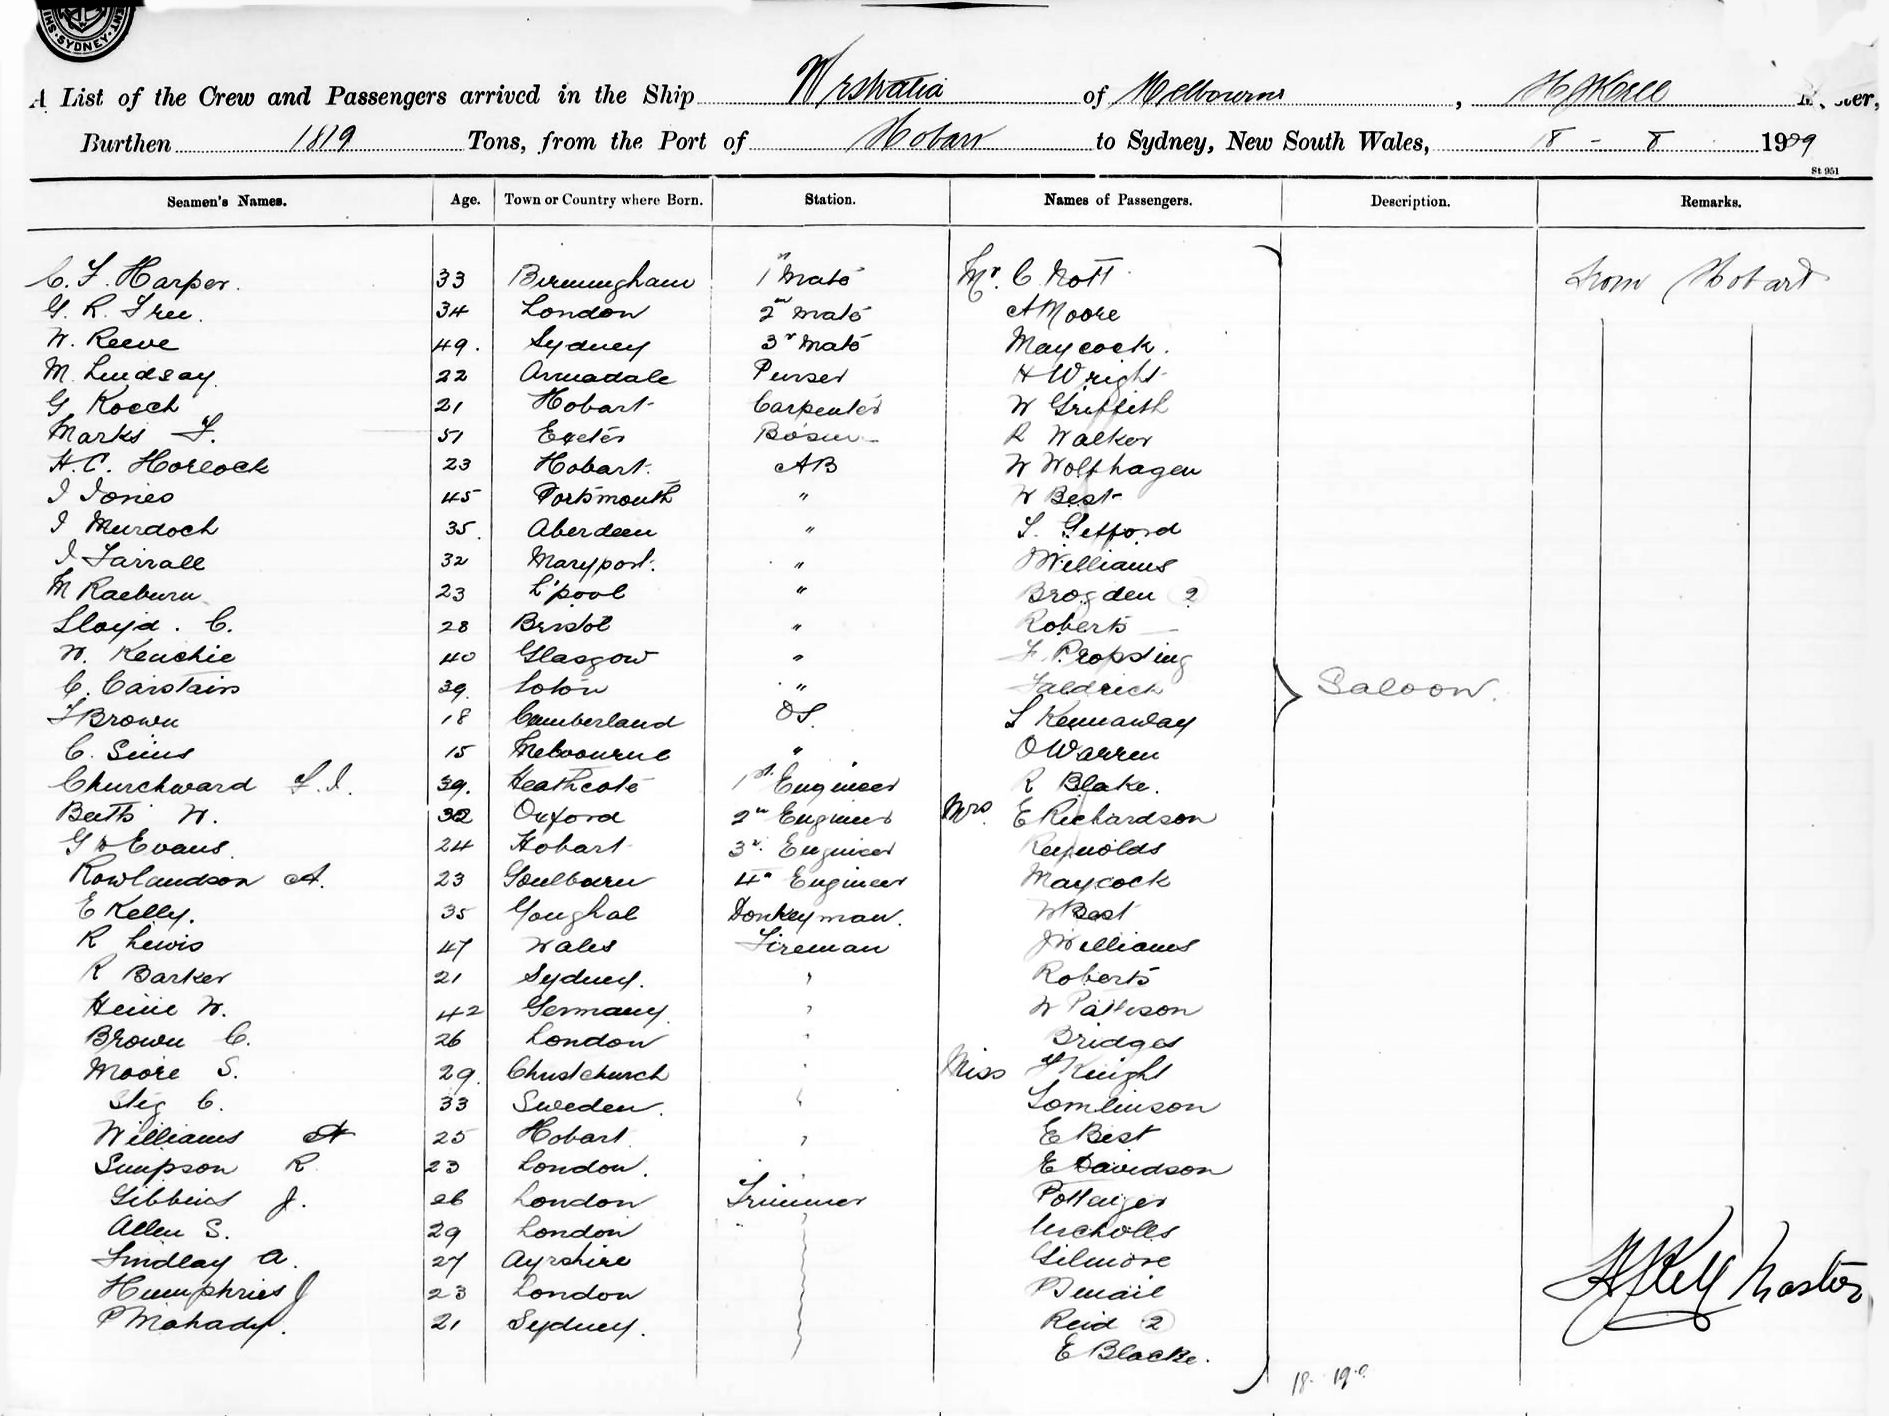 SYDNEY
A List of the Crew and Passengers arrived in the Ship Westralia of Melbourne, H J Kell
Burthen 1819 Tons, from the Port of Hobart to Sydney, New South Wales, 18 - 8 1909
St 951
Seamen's Names. Age. Town or Country where Born. Station. Names of Passengers. Description. Remarks.
C. F. Harper. 33 Birmingham 1st Mate Mr. C Nott From Hobart
G. R. Free. 34 London 2nd Mate A Moore
W. Reeve 49. Sydney 3r Mate Maycock.
M. Lindsay. 22 Armadale Purser H Wright
G Koech 21 Hobart Carpenter W Griffith
Marks F. 51 Exeter Bosun R Walker
H. C. Horlock 23 Hobart. AB W Wolfhagen
J Jones 45 Portsmouth " W Best
J Murdoch 35. Aberdeen " S. Gifford
J Farrall 32 Maryport. " J Williams
M Raeburn 23 L'pool " Brogden 2
Lloyd. C. 28 Bristol " Roberts
W. Kenchie 40 Glasgow " F. Propsting
C. Carstairs 39. " Jaldrich Saloon.
J Brown 18 Cumberland OS. S Kennaway
C. Sims 15 Melbourne " O Warren
Churchward F. J. 39. Heathcote 1st. Engineer R Blake.
Betts W. 32 Oxford 2n Engineer Mrs. E Richardson
G W Evans. 24 Hobart 3r. Engineer Reynolds
Rowlandson A. 23 Goulburn 4th Engineer Maycock
E Kelly. 35 Youghal Donkeyman. W Best
R Lewis 47 Wales Fireman J Williams
R Barker 21 Sydney. " Roberts
Heine W. 42 Germany. " W Pattison
Brown C. 26 London " Bridges
Moore S. 29. Christchurch " Miss Knight
Stig C. 33 Sweden. " Tomlinson
Williams A 25 Hobart. " E Best
Simpson R 23 London. " E Davidson
Gibbins J. 26 London Trimmer Pottinger
Allen S. 29 London " Nicholls
Lindlay A. 27 Ayrshire Gilmore
Humphries J 23 London H J Kell Master
P Mahady. 21 Sydney. Reid 2
E Blacke.
18